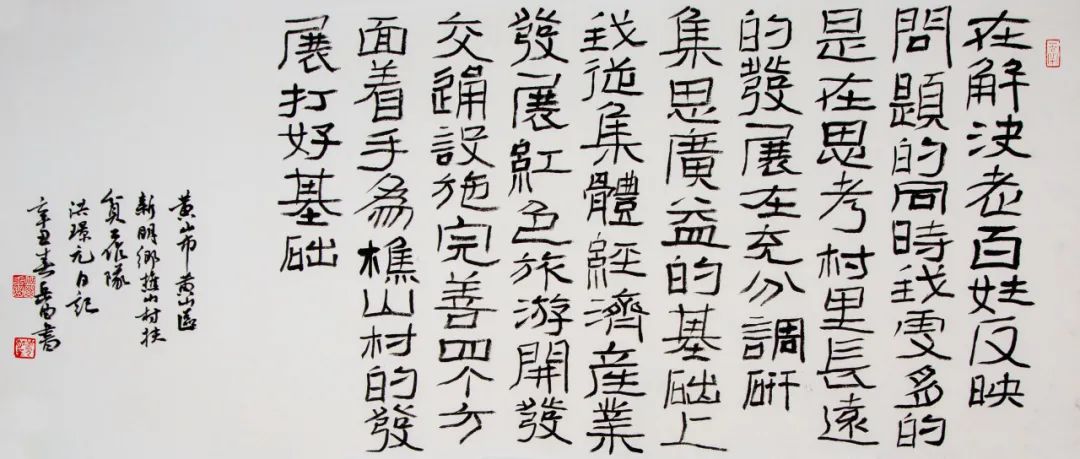 在解決老百姓反映
問題的同時我更多的
是在思考村里長遠
的發展在充分調研
集思廣益的基础上
我從集體經濟産業
發展紅色旅游開發
交通設施完善四个方
面着手為樵山村的發
展打好基础
黄山市黄山區
新明鄉樵山村扶
貧工作隊
洪璟元日記
辛丑春 書